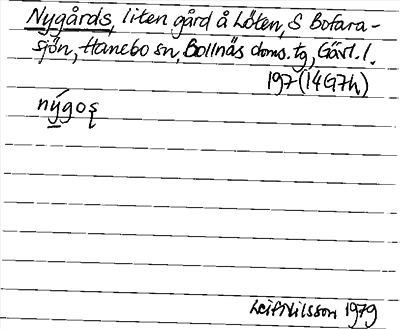 Nygårds, liten gård å Löten, S Bofara-
sjön, Hanebo sn, Bollnäs doms.tg, Gävl.l.
197 (14G7h)
nýgoş
Leif Nilsson 1979